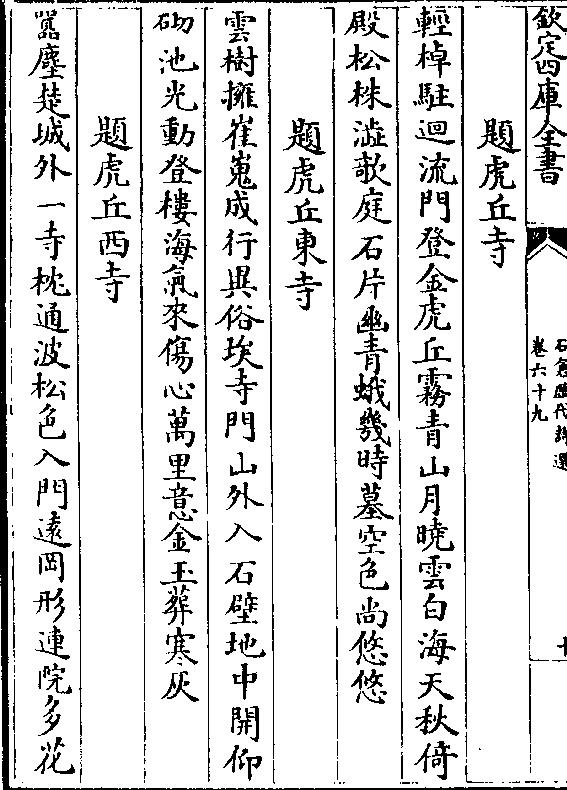 欽定四庫全書
石倉歷代詩選
卷六十九
題虎丘寺
輕棹駐迴流門登金虎丘霧青山月曉雲白海天秋倚
殿松株澁欹庭石片幽青蛾幾時墓空色尚悠悠
題虎丘東寺
雲樹擁崔嵬成行異俗埃寺門山外入石壁地中開仰
砌池光動登樓海氣來傷心萬里意金玉葬寒灰
題虎丘西寺
囂塵楚城外一寺枕通波松色入門遠岡形連院多花